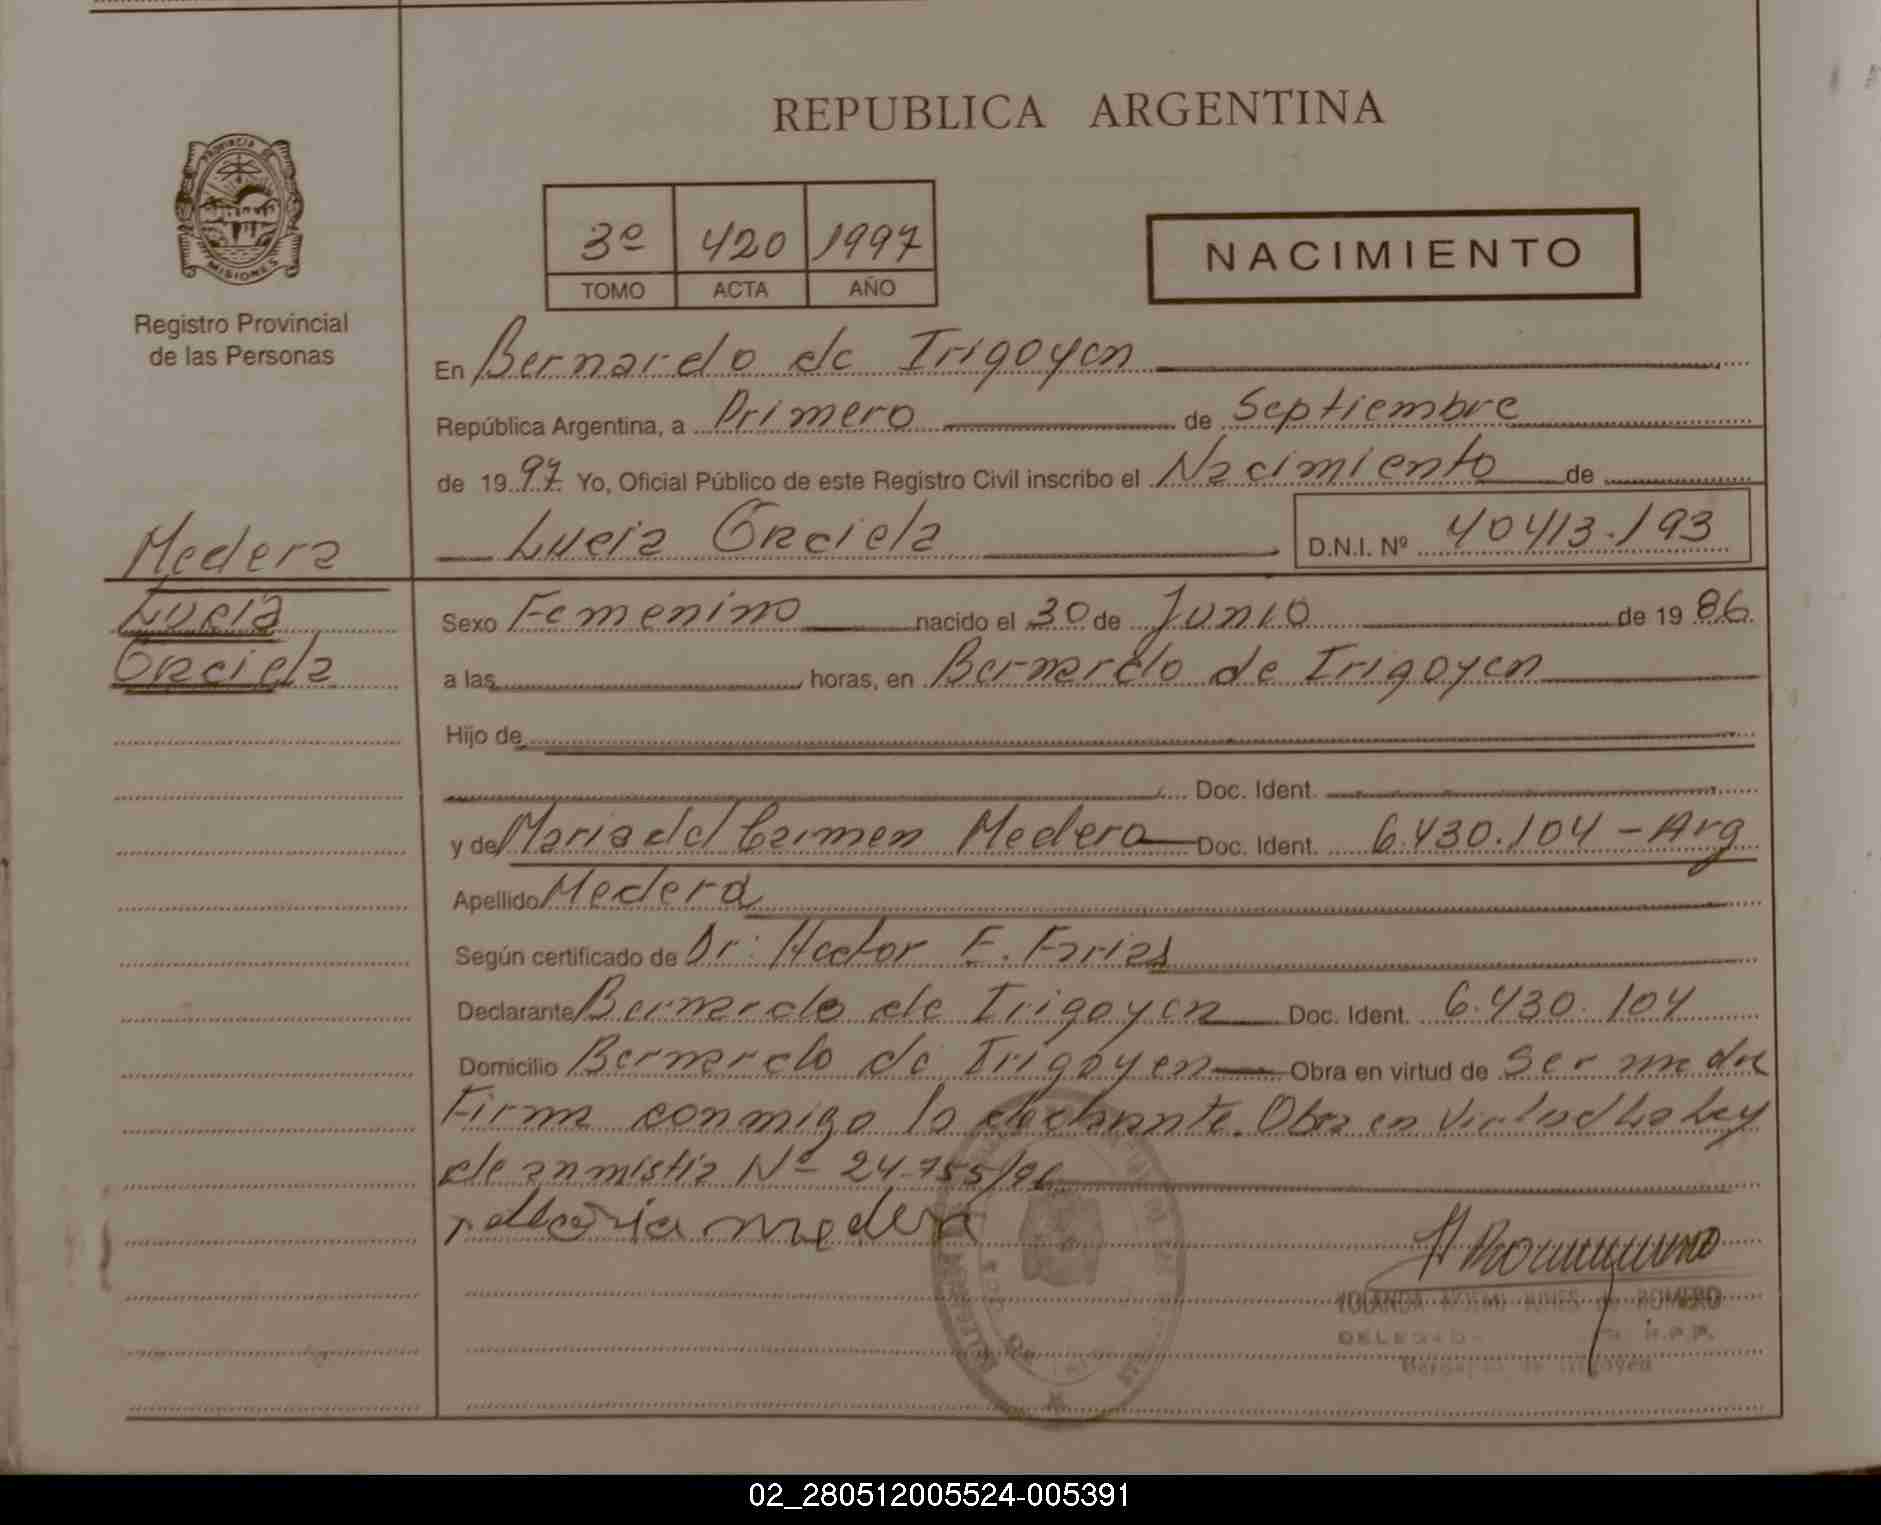 REPUBLICA ARGENTINA
PROVINCIA DE
MISIONES
Registro Provincial
de las Personas
3º 420 1997
TOMO ACTA AÑO
NACIMIENTO
En Bernardo de Irigoyen
República Argentina, a Primero de Septiembre
de 19 97 Yo, Oficial Público de este Registro Civil inscribo el Nacimiento de
Lucia Graciela D.N.I. Nº 40413.193
Medera
Lucia
Graciela
Sexo Femenino nacido el 30 de Junio de 19 86
a las horas, en Bernardo de Irigoyen
Hijo de
Doc. Ident.
y de Maria del Carmen Medera Doc. Ident. 6.430.104 - Arg
Apellido Medera
Según certificado de Dr: Hector E. Farias
Declarante Bernardo de Irigoyen Doc. Ident. 6.430.104
Domicilio Bernardo de Irigoyen Obra en virtud de ser madre
Firma conmigo la declarante. Obra en virtud La Ley
de anmistia Nº 24.755/96
medera
YOLANDA NOEMI de ROMERO
Bernardo de Irigoyen
02_280512005524-005391